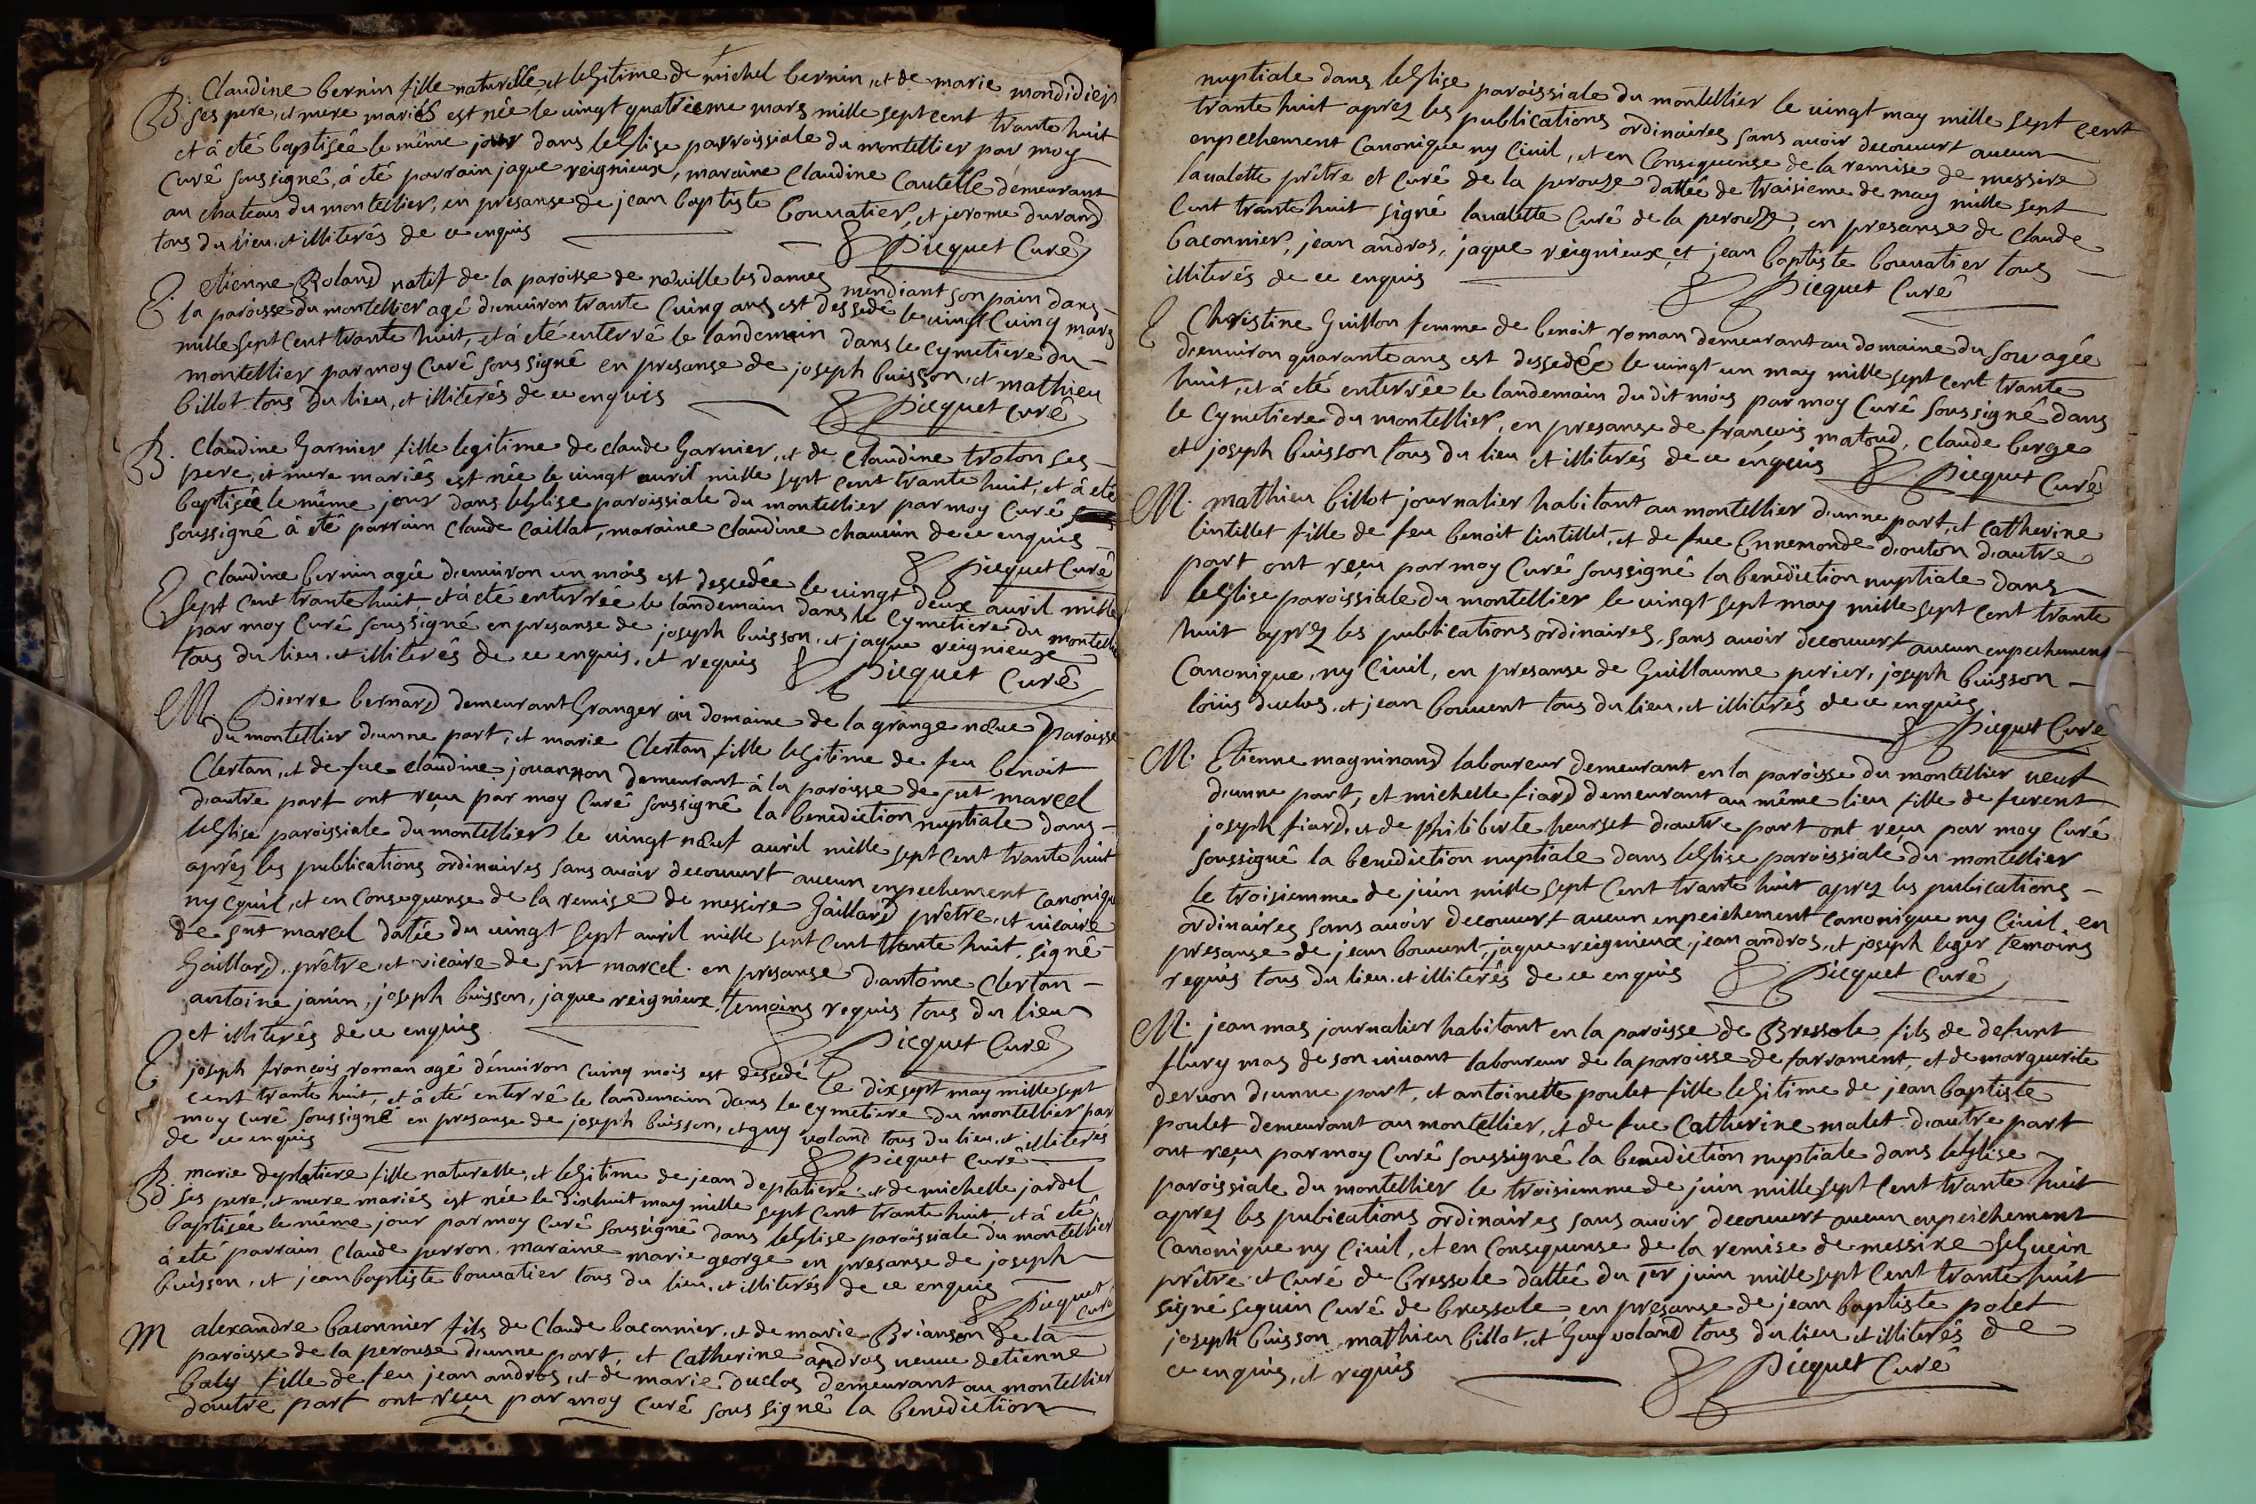 B. Claudine bernin fille naturelle, et legitime de michel bernin, et de marie mondidier
ses pere, et mere mariés est née le vingt quatrieme mars mille sept cent trante huit
et á eté baptisée le même jour dans leglise parroissiale du montellier par moy
Curé soussigné, á eté parrain jaque reignieux, maraine Claudine Cautelle demeurant
au chateau du montellier, en presanse de jean baptiste bouvatier, et jerome durand
tous du lieu, et illiterés de ce enquis
Picquet Curé
E. etienne Roland natif de la paroisse de neuville les dames mendiant son pain dans
la paroisse du montellier agé d'environ trante Cuinq ans est dessedé le vingt Cuinq mars
mille sept Cent trante huit, et á eté enterré le landemain dans le cymetiere du
montellier par moy Curé soussigné en presanse de joseph buisson, et mathieu
billot tous du lieu, et illiterés de ce enquis
Picquet Curé
B. Claudine Garnier fille legitime de claude Garnier, et de Claudine troton ses
pere, et mere mariés est née le vingt avril mille sept Cent trante huit, et á eté
baptisée le même jour dans leglise paroissiale du montellier par moy Curé
soussigné á eté parrain Claude Caillat, maraine Claudine chauvin de ce enquis
Picquet Curé
E Claudine bernin agée d'environ un mois est dessedée le vingt deux avril mille
sept Cent trante huit, et á eté enterrée le landemain dans le Cymetiere du montellier
par moy Curé soussigné en presanse de joseph buisson, et jaque reignieux
tous du lieu, et illiterés de ce enquis, et requis
Picquet Curé
M Pierre bernard demeurant Granger au domaine de la grange neuve paroisse
du montellier d'unne part, et marie Clertan fille legitime de feu benoit
Clertan, et de fue claudine jouannon demeurant á la paroisse de snt marcel
d'autre part ont reçu par moy Curé soussigné la benediction nuptiale dans
leglise paroissiale du montellier le vingt neuf avril mille sept Cent trante huit
aprés les publications ordinaires sans avoir decouvert aucun enpechement canonique
ny Cyuil, et en Consequense de la remise de messire Gaillard prêtre, et vicaire
de snt marcel datée du vingt sept avril mille sept Cent trante huit, signé
Gaillard, prêtre, et vicaire de snt marcel. en presanse d'antoine Clertan
antoine janin, joseph buisson, jaque reignieux temoins requis tous du lieu
et illiterés de ce enquis
Picquet Curé
E joseph françois roman agé d'environ cuinq mois est dessedé le dix sept may mille sept
cent trante huit, et á eté enterré le landemain dans le cymetiere du montellier par
moy Curé soussigné en presanse de joseph buisson, et guy voland tous du lieu, et illiterés
de ce enquis
Picquet Curé
B. marie deplatiere fille naturelle, et legitime de jean deplatiere, et de michelle jardel
ses pere, et mere mariés est née le dix huit may mille sept Cent trante huit, et á eté
baptisée le même jour par moy Curé soussigné dans leglise paroissiale du montellier
á eté parrain Claude perron, maraine marie george en presanse de joseph
buisson, et jean baptiste bouvatier tous du lieu, et illiterés de ce enquis
Picquet
Curé
M alexandre baconnier fils de Claude baconnier, et de marie Brianson de la
paroisse de la perouse d'unne part, et Catherine andros veuve detienne
baly fille de feu jean andros, et de marie duclos demeurant au montellier
d'autre part ont reçu par moy Curé soussigné la benediction
nuptiale dans leglise paroissiale du montellier le vingt may mille sept cent
trante huit aprez les publications ordinaires sans avoir decouvert aucun
enpechement Canonique ny Civil, et en Consequense de la remise de messire
lavalette prêtre et Curé de la perouze dattée de troisieme de may mille sept
Cent trante huit signé lavalette Curé de la perouze, en presanse de Claude
baconnier, jean andros, jaque reignieux, et jean baptiste bouvatier tous
illiterés de ce enquis
Picquet Curé
E Christine Guillon femme de benoit roman demeurant au domaine du sou agée
d'environ quarante ans est dessedée le vingt un may mille sept cent trante
huit, et á eté enterrée le landemain du dit mois par moy Curé soussigné dans
le Cymetiere du montellier, en presanse de françois matoud, Claude berge
et joseph buisson tous du lieu et illiterés de ce enquis
Picquet Curé
M. mathieu billot journalier habitant au montellier d'unne part, et Catherine
lintillet fille de feu benoit lintillet, et de fue Ennemonde d'outon d'autre
part ont reçu par moy Curé soussigné la benediction nuptiale dans
leglise paroissiale du montellier le vingt sept may mille sept cent trante
huit aprez les publications ordinaires, sans avoir decouvert aucun enpechement
Canonique, ny Civil, en presanse de Guillaume perier, joseph buisson
loüis duclos, et jean bouvent tous du lieu, et illiterés de ce enquis
Picquet Curé
M. Etienne magninand laboureur demeurant en la paroisse du montellier veuf
d'unne part, et michelle fiard demeurant au même lieu fille de furent
joseph fiard, et de philiberte heurset d'autre part ont reçu par moy Curé
soussigné la benediction nuptiale dans leglise paroissiale du montellier
le troisiemme de juin mille sept Cent trante huit aprez les pubications
ordinaires sans avoir decouvert aucun enpeichement canonique ny Civil, en
presanse de jean bouvent, jaque reignieux, jean andros, et joseph leger temoins
requis tous du lieu, et illiterés de ce enquis
Picquet Curé
M. jean mas journalier habitant en la paroisse de Bressole, fils de defunt
flury mas de son vivant laboureur de la paroisse de farrament, et de marguerite
dervon d'unne part, et antoinette poulet fille legitime de jean baptiste
poulet demeurant au montellier, et de fue Catherine malet d'autre part
ont reçu par moy Curé soussigné la benediction nuptiale dans leglise
paroissiale du montellier le troisiemme de juin mille sept Cent trante huit
aprez les pubications ordinaires sans avoir decouvert aucun enpeichement
Canonique ny Civil, et en Consequense de la remise de messire seguein
prêtre et Curé de bressole dattée du 1er juin mille sept Cent trante huit
signé seguin Curé de bressole, en presanse de jean baptiste polet
joseph buisson, mathieu billot, et Guy voland tous du lieu et illiterés de
ce enquis, et requis
Picquet Curé